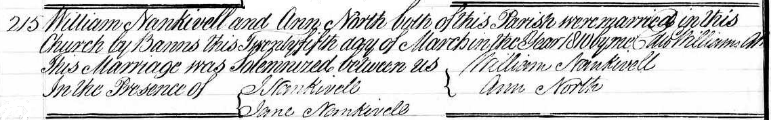 215 William Nankivell and Ann North both of this Parish were married in this
Church by Banns this Twentyfifth day of March in the Year 1810 by me
This Marriage was Solemnized between us William Nankivell
Ann North
In the Presence of Nankivell
Jane Nankivell